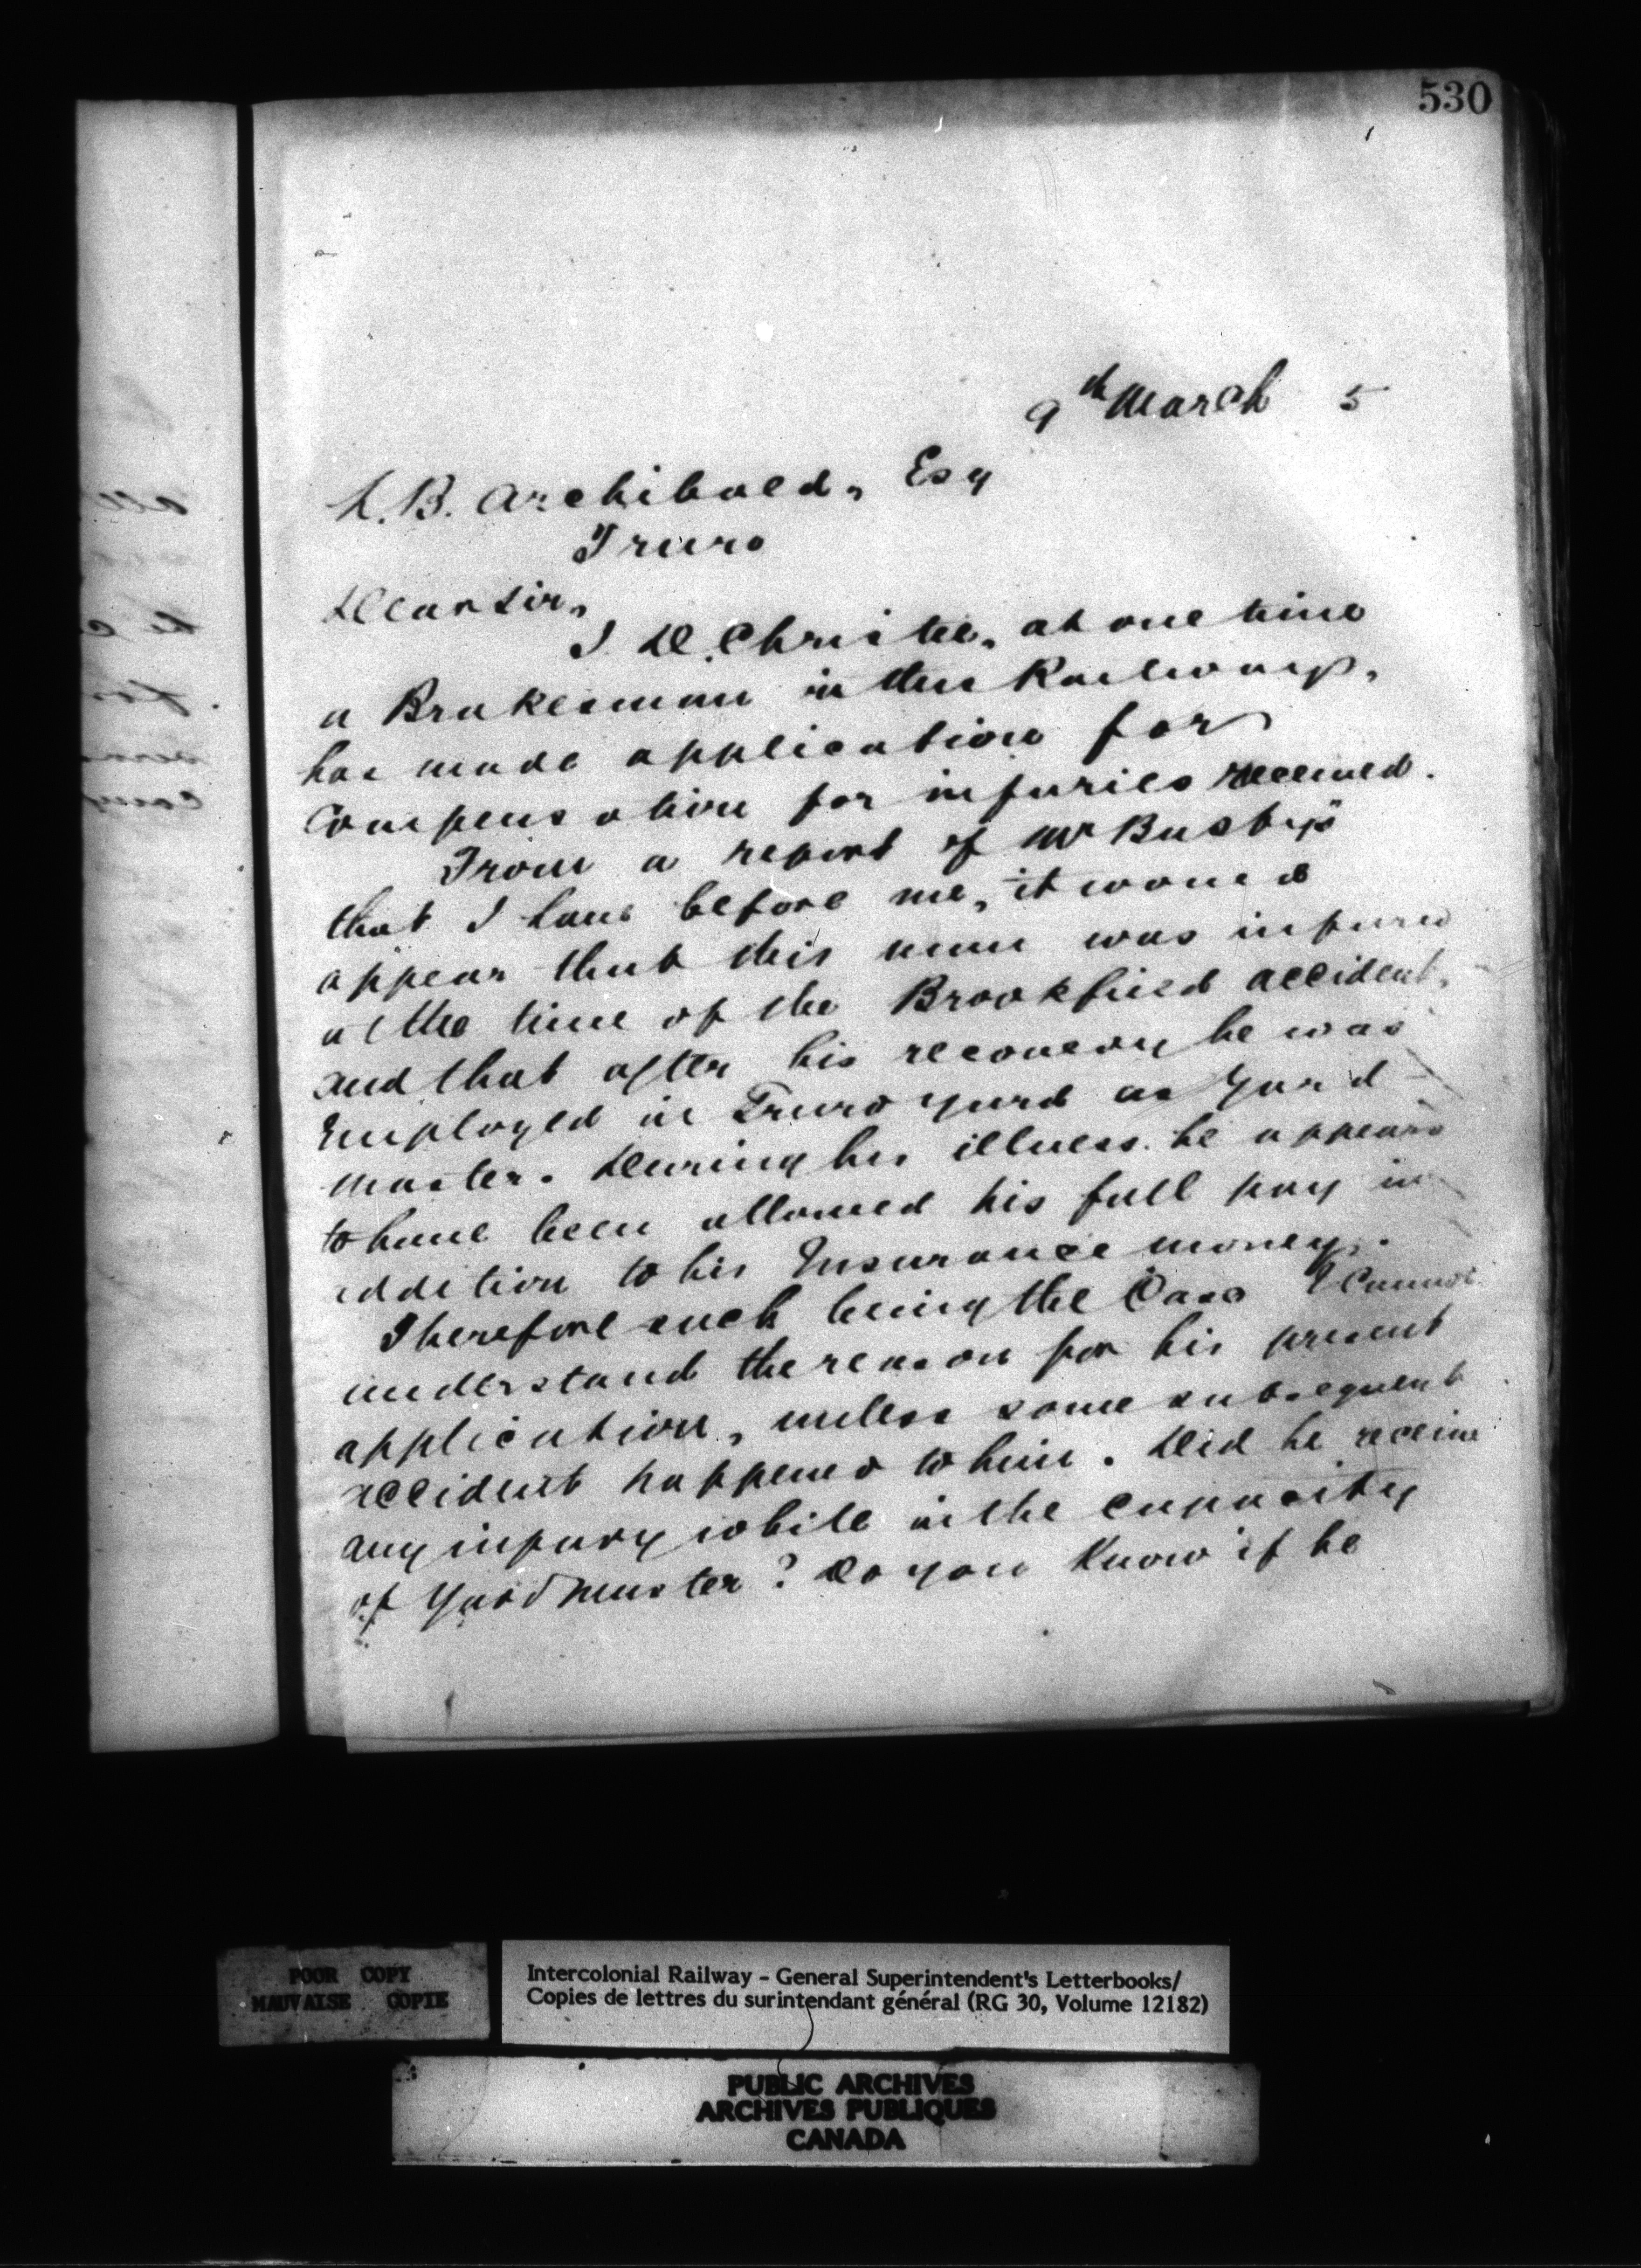 530
9th March 5
L.B. Archibald, Esq
Truro
Dear Sir,
J. D. Christie, at one time
a Brakesman in the Railway,
has made application for
Compensation for injuries received.
From a report of Mr Busby's
that I have before me, it would
appear that this man was injured
at the time of the Brookfield accident,
and that after his recovery he was
Employed in Truro yard as Yard
master. During his illness he appears
to have been allowed his full pay in
addition to his Insurance money.
Therefore such being the Case I Cannot
understand the reason for his present
application, unless some subsequent
accident happened to him. Did he receive
any injury while in the capacity
of Yard master? Do you Know if he
POOR COPY
MAUVAISE COPIE
Intercolonial Railway - General Superintendent's Letterbooks/
Copies de lettres du surintendant général (RG 30, Volume 12182)
PUBLIC ARCHIVES
ARCHIVES PUBLIQUES
CANADA